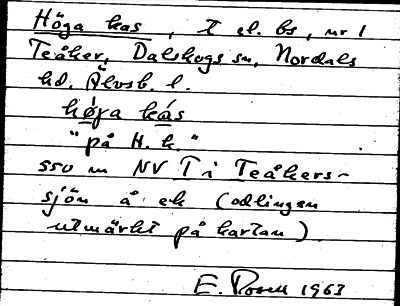 Höga kas, T el. bs, nr 1
Teåker, Dalskogs sn, Nordals
hd. Älvsb. l.
hø̀ga kás
"på H. k."
550 m NV T i Teåkers-
sjön å ek (odlingen
utmärkt på kartan).
E. 1963